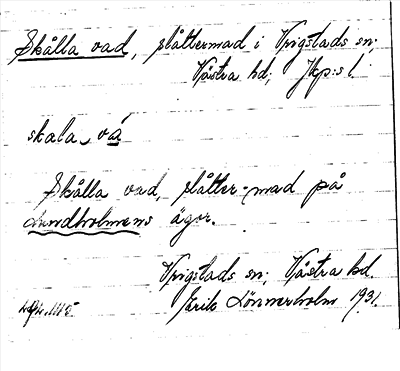 Skålla vad, slåttermad i Vrigstads sn;
Västra hd; Jkp:s l.
skala, vá
Skålla vad, slåtter-mad på
Lundholmens ägor.
Vrigstads sn; Västra hd.
Erik Lönnerholm 1931.